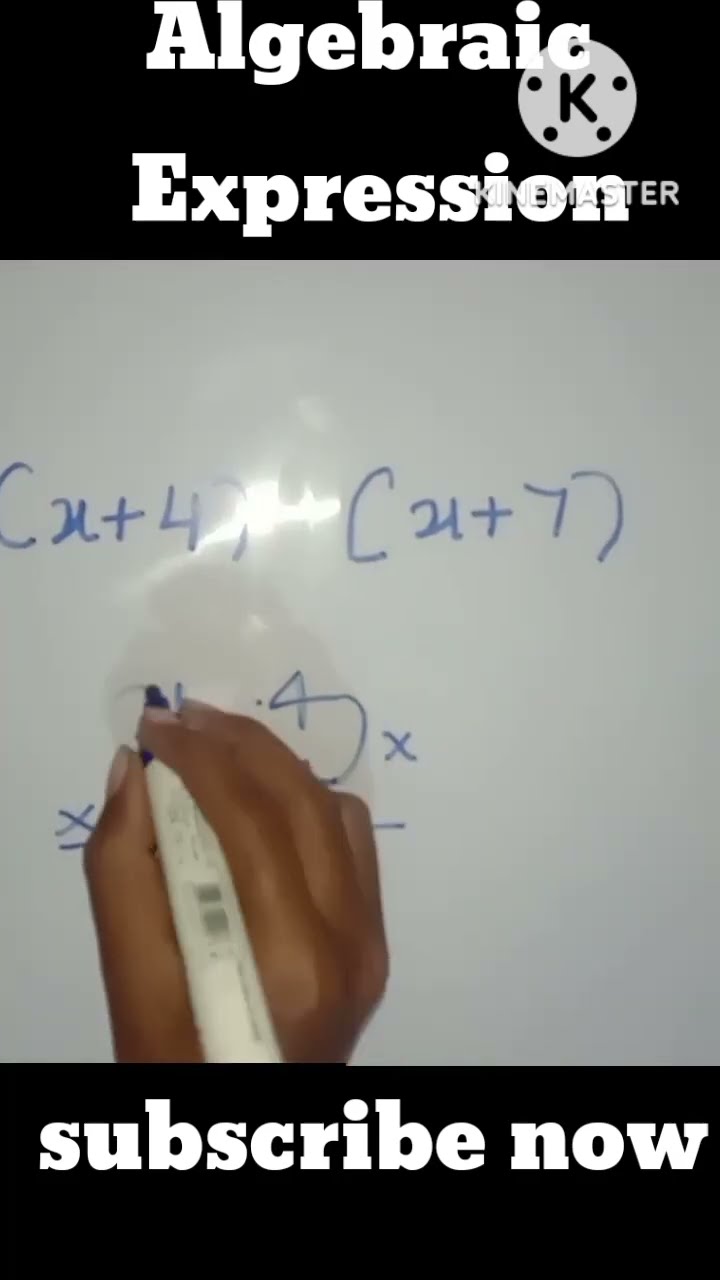 Algebraic
K
Expression
KINEMASTER
(x+4) (x+7)
4) x
x
subscribe now